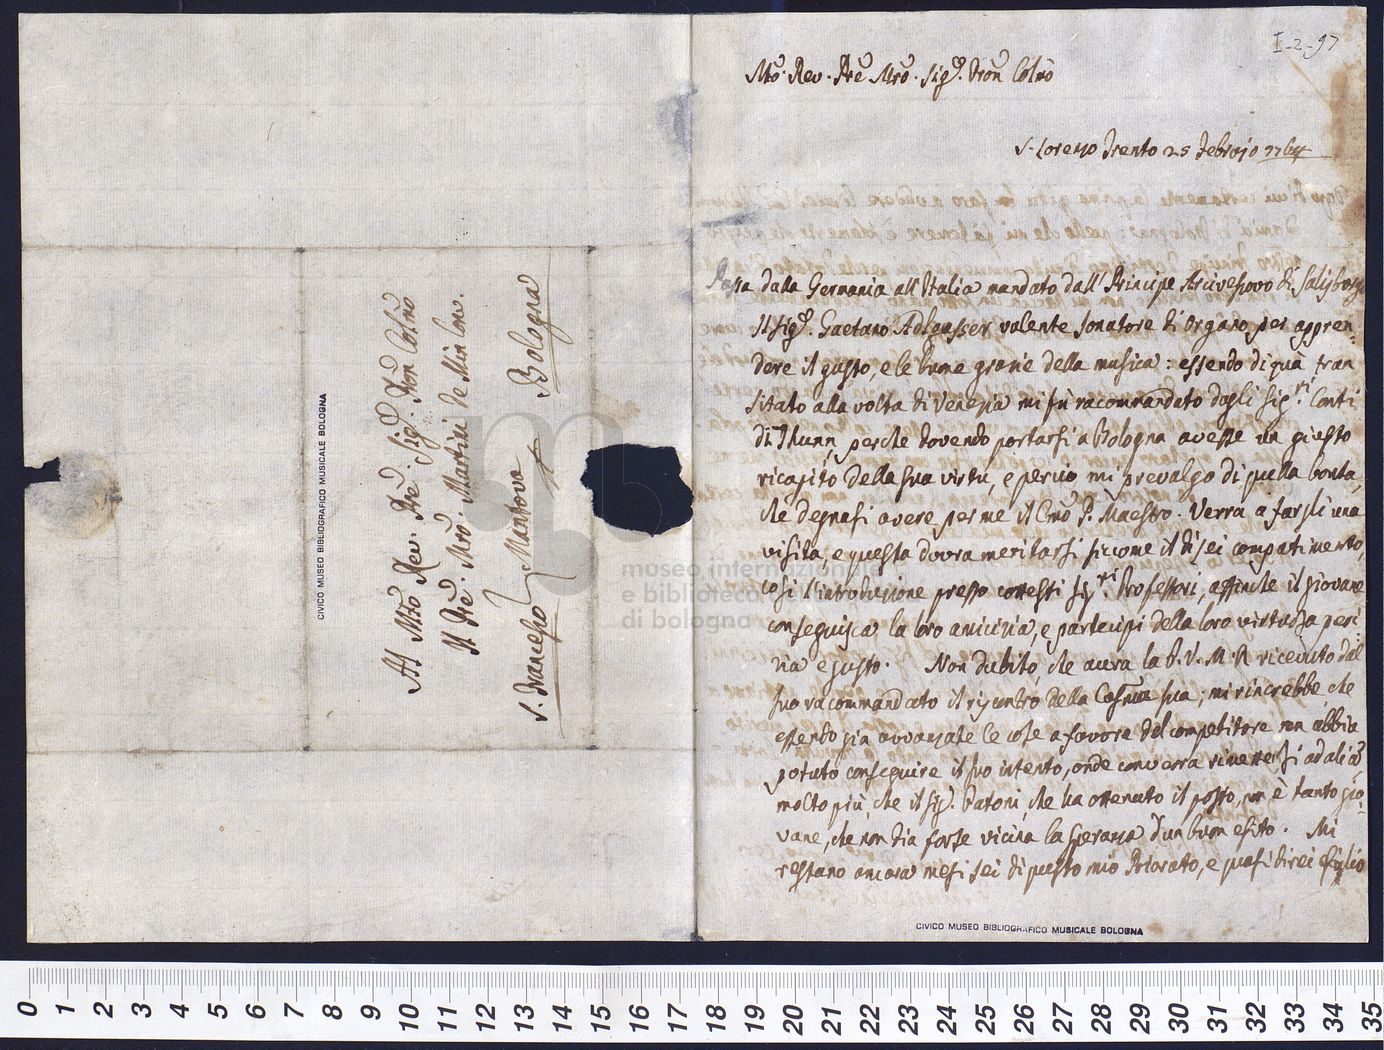 I-2-97
Mto. Rev. Pre Mro. Sigr. Pron Colmo
S. Lorenzo Trento 25 Febrajo 1764
Passa dalla Germania all'Italia mandato dall'Principe Arcivescovo di Salisborgo
Il Sigr. Gaetano Adlgasser valente sonatore di organo per appren=
dere il gusto, e le buone grazie della musica: essendo di quà tran
sitato alla volta di Venezia mi fù racommandato dagli Sigri Conti
di Thunn, perche dovendo portarsi a Bologna avesse un giusto
ricapito della sua virtù, e perciò mi prevalgo di quella bontà,
che degnasi avere per me il Cmo P. Maestro. Verra a fargli una
visita, e questa dovra meritarsi siccome il di sei compatimento,
cosi l'introduzione presso cotesti Sigri Professori, affinche il giovane
conseguisca la loro amicizia, e partecipi della loro virtuosa peri=
zia e gusto. Non dubito, che avera la P. V. M. R. ricevuto dal
suo racommandato il riscontro della sua; mi rincrebbe, che
essendo gia avvanzate le cose a favore del competitore non abbia
potuto conseguire il suo intento, onde converra rimettersi ad alia
molto più, che il Sigr. Patoni, che ha ottenuto il posto, non è tanto gio=
vane, che non dia forse vicina la speranza d'un buon esito. Mi
restano ancora mesi sei di questo mio Priorato, e quasi direi esiglio
CIVICO MUSEO BIBLIOGRAFICO MUSICALE BOLOGNA
Al Mto Rev. Pre. Sigr. Pron Colmo
Il Pre. Mro. Martini de Min Conv.
S. Francesco Mantova Bologna
CIVICO MUSEO BIBLIOGRAFICO MUSICALE BOLOGNA
museo internazionale
e biblioteca
di bologna
0 1 2 3 4 5 6 7 8 9 10 11 12 13 14 15 16 17 18 19 20 21 22 23 24 25 26 27 28 29 30 31 32 33 34 35